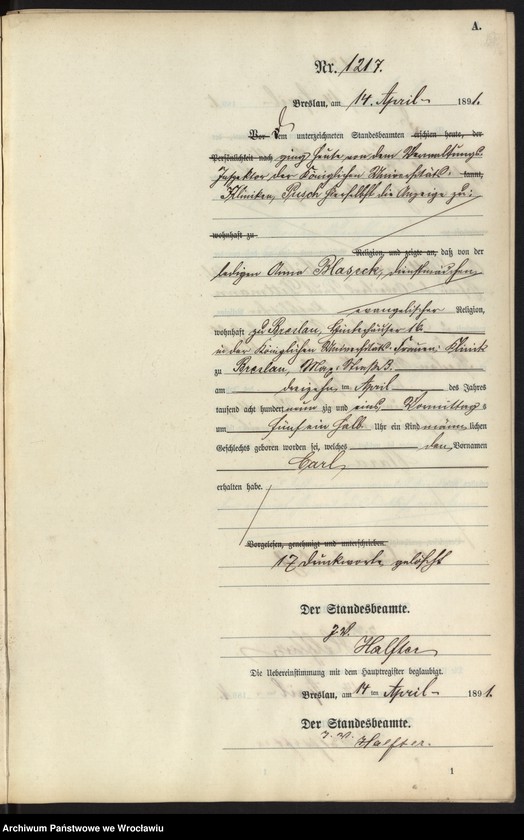 A.
Nr. 1217.
Breslau, am 14. April 1891.
Vor dem unterzeichneten Standesbeamten erschien heute, der
Persönlichkeit nach ging heute von dem Verwaltungs-
Inspektor der Königlichen Universitäts- kannt,
Kliniken, Pusch hierselbst die Anzeige zu:
wohnhaft zu
Religion, und zeigte an, daß von der
ledigen Anna Blaseck, Dienstmädchen
evangelischer Religion,
wohnhaft zu Breslau, Hinterhäuser 16
in der Königlichen Universitäts-Frauen-Klinik
zu Breslau, Max-Straße 3.
am dreizehn ten April des Jahres
tausend acht hundert neun zig und eins Vormittags
um fünf ein halb Uhr ein Kind männ lichen
Geschlechts geboren worden sei, welches den Vornamen
Carl
erhalten habe.
Vorgelesen, genehmigt und unterschrieben
17 Druckworte gelöscht
Der Standesbeamte.
J. V.
Halfter
Die Uebereinstimmung mit dem Hauptregister beglaubigt.
Breslau, am 14 ten April 1891.
Der Standesbeamte.
J. V. Halfter.
1
Archiwum Państwowe we Wrocławiu